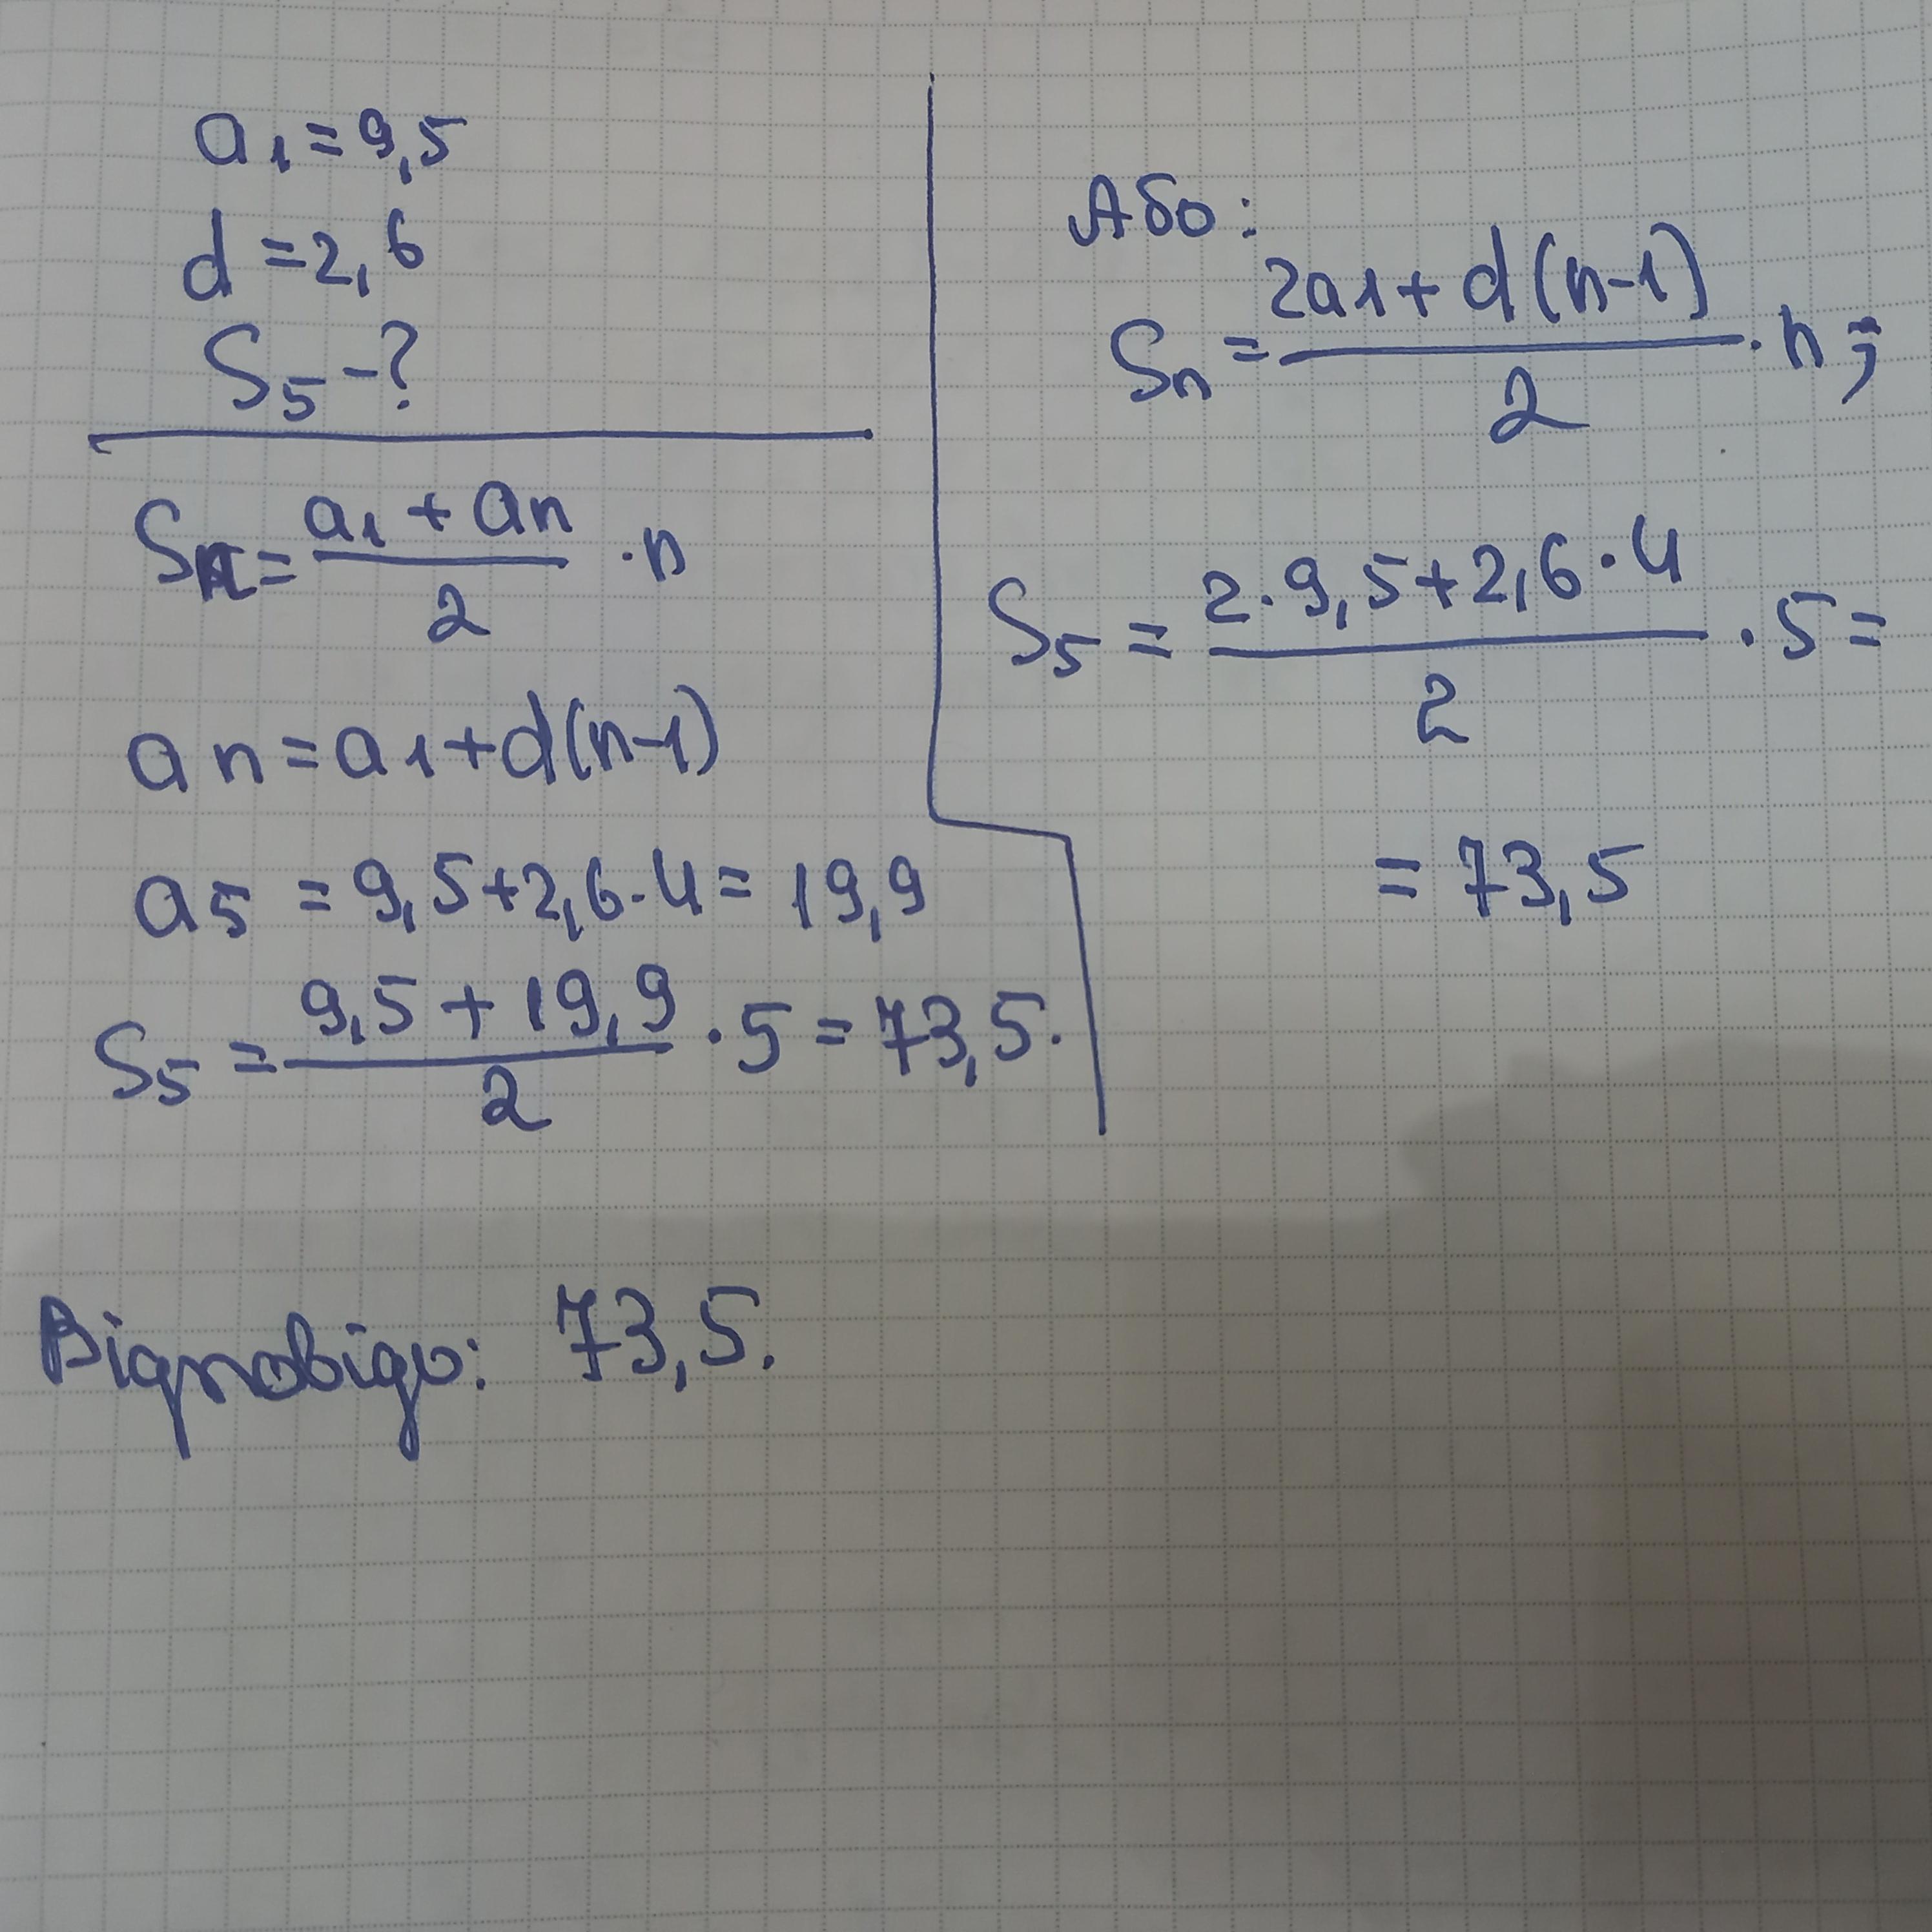 a₁=9,5
d=2,6
S₅-?
Sₙ= (a₁+aₙ)/2 ·n
aₙ=a₁+d(n-1)
a₅=9,5+2,6·4=19,9
S₅= (9,5+19,9)/2 ·5=73,5.
Або:
Sₙ= (2a₁+d(n-1))/2 ·n;
S₅= (2·9,5+2,6·4)/2 ·5=
=73,5
Відповідь: 73,5.